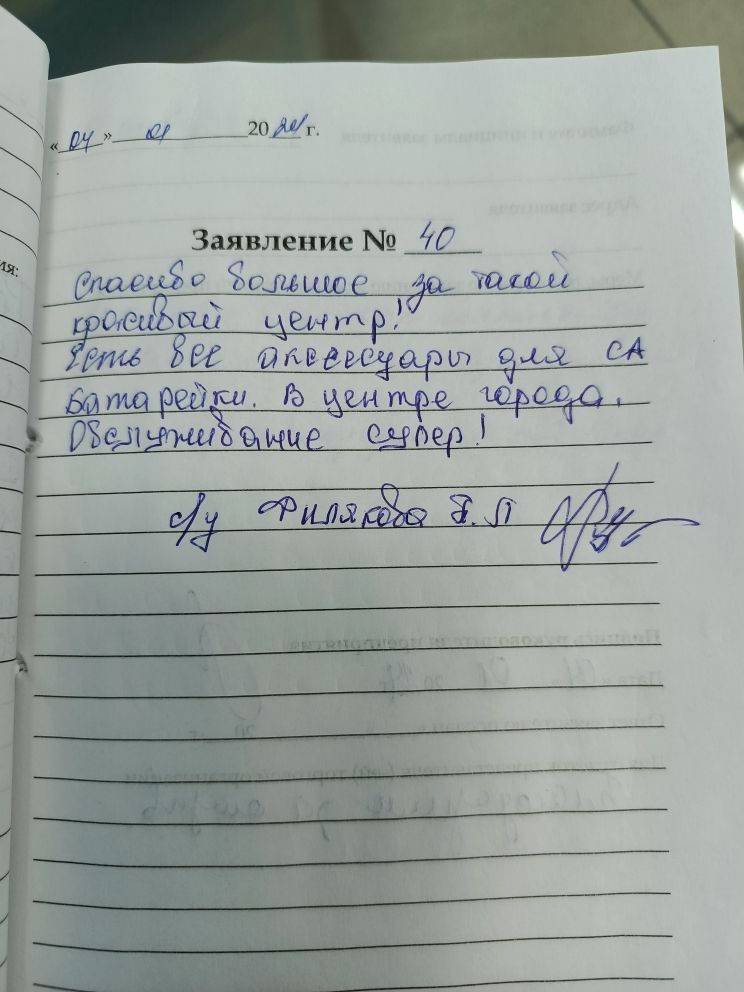 «04» 01 2024 г.
Заявление № 40
Спасибо большое за такой
красивый центр!
Есть все аксессуары для СА
батарейки. В центре города.
Обслуживание супер!
с/у Филякова Т. П
ия: